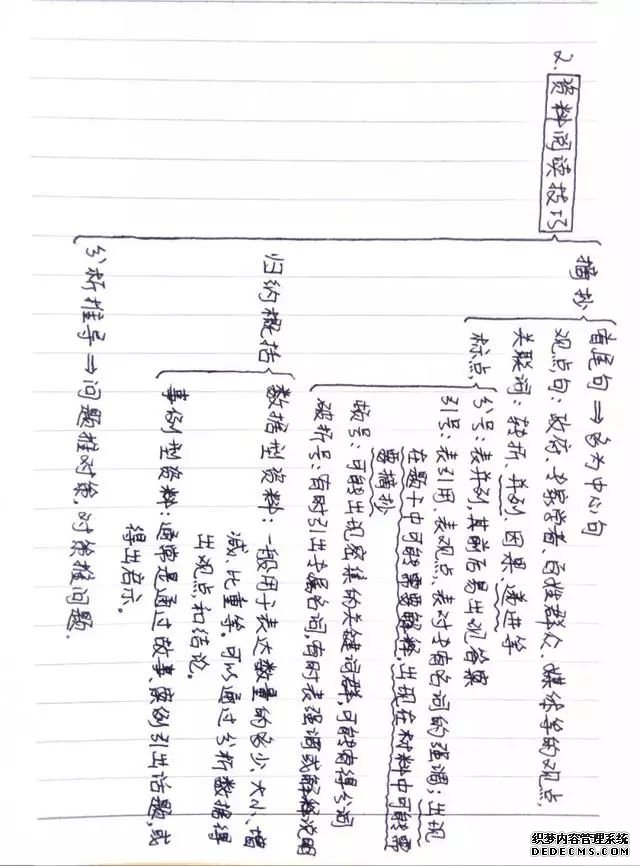 2. 资料阅读技巧
摘抄
首尾句 ⇒ 多为中心句
观点句：政府、专家学者、百姓群众、媒体等的观点，
关联词：转折、并列、因果、递进等
标点
分号：表并列，其前后易出现答案
引号：表引用、表观点，表对专有名词的强调；出现
在题干中可能需要解释，出现在材料中可能需
要摘抄
顿号：可能出现密集的关键词群，可能有得分词
破折号：有时引出专属名词，有时表强调或解释说明
归纳概括
数据型资料：一般用于表达数量的多少、大小、增
减、比重等。可以通过分析数据得
出观点和结论。
事例型资料：通常是通过故事、案例引出话题，或
得出启示。
分析推导 ⇒ 问题推对策，对策推问题.
织梦内容管理系统
DEDECMS.COM